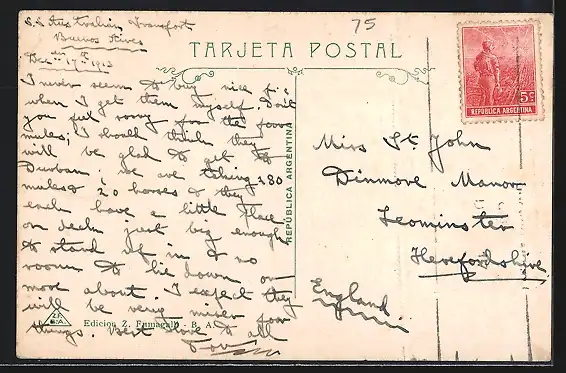 S.S. Australian Transport
Buenos Aires
Dec 17th 1913
75
TARJETA POSTAL
5c
REPÚBLICA ARGENTINA
I never seem to buy nice p.c
when I get them myself. Don't
you feel sorry for the poor
mules, I should think they
will be glad to get to
Durban. We are taking 280
mules & 20 horses & they
each have a little place
on deck just big enough
to stand up in & no
room to lie down or
move about. I expect they
will be very miser poor
things. Best love to all
REPÚBLICA ARGENTINA
Miss St John
Dinmore Manor
Leominster
Herefordshire
England
Z.F.
B.A.
Edicion Z. Fumagalli - B. A.